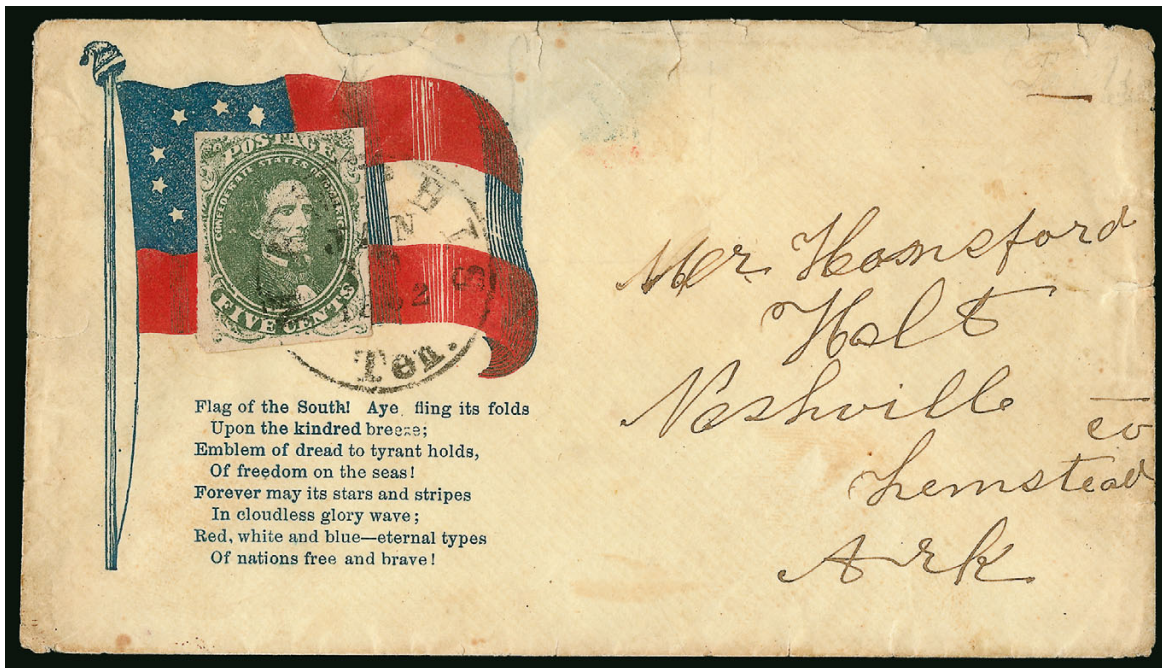 POSTAGE
CONFEDERATE STATES OF AMERICA
FIVE CENTS
JAN
1862
Ten.
Flag of the South! Aye, fling its folds
Upon the kindred breeze;
Emblem of dread to tyrant holds,
Of freedom on the seas!
Forever may its stars and stripes
In cloudless glory wave;
Red, white and blue—eternal types
Of nations free and brave!
Mr. Hansford
Holt
Nashville
Hemstead co
Ark.